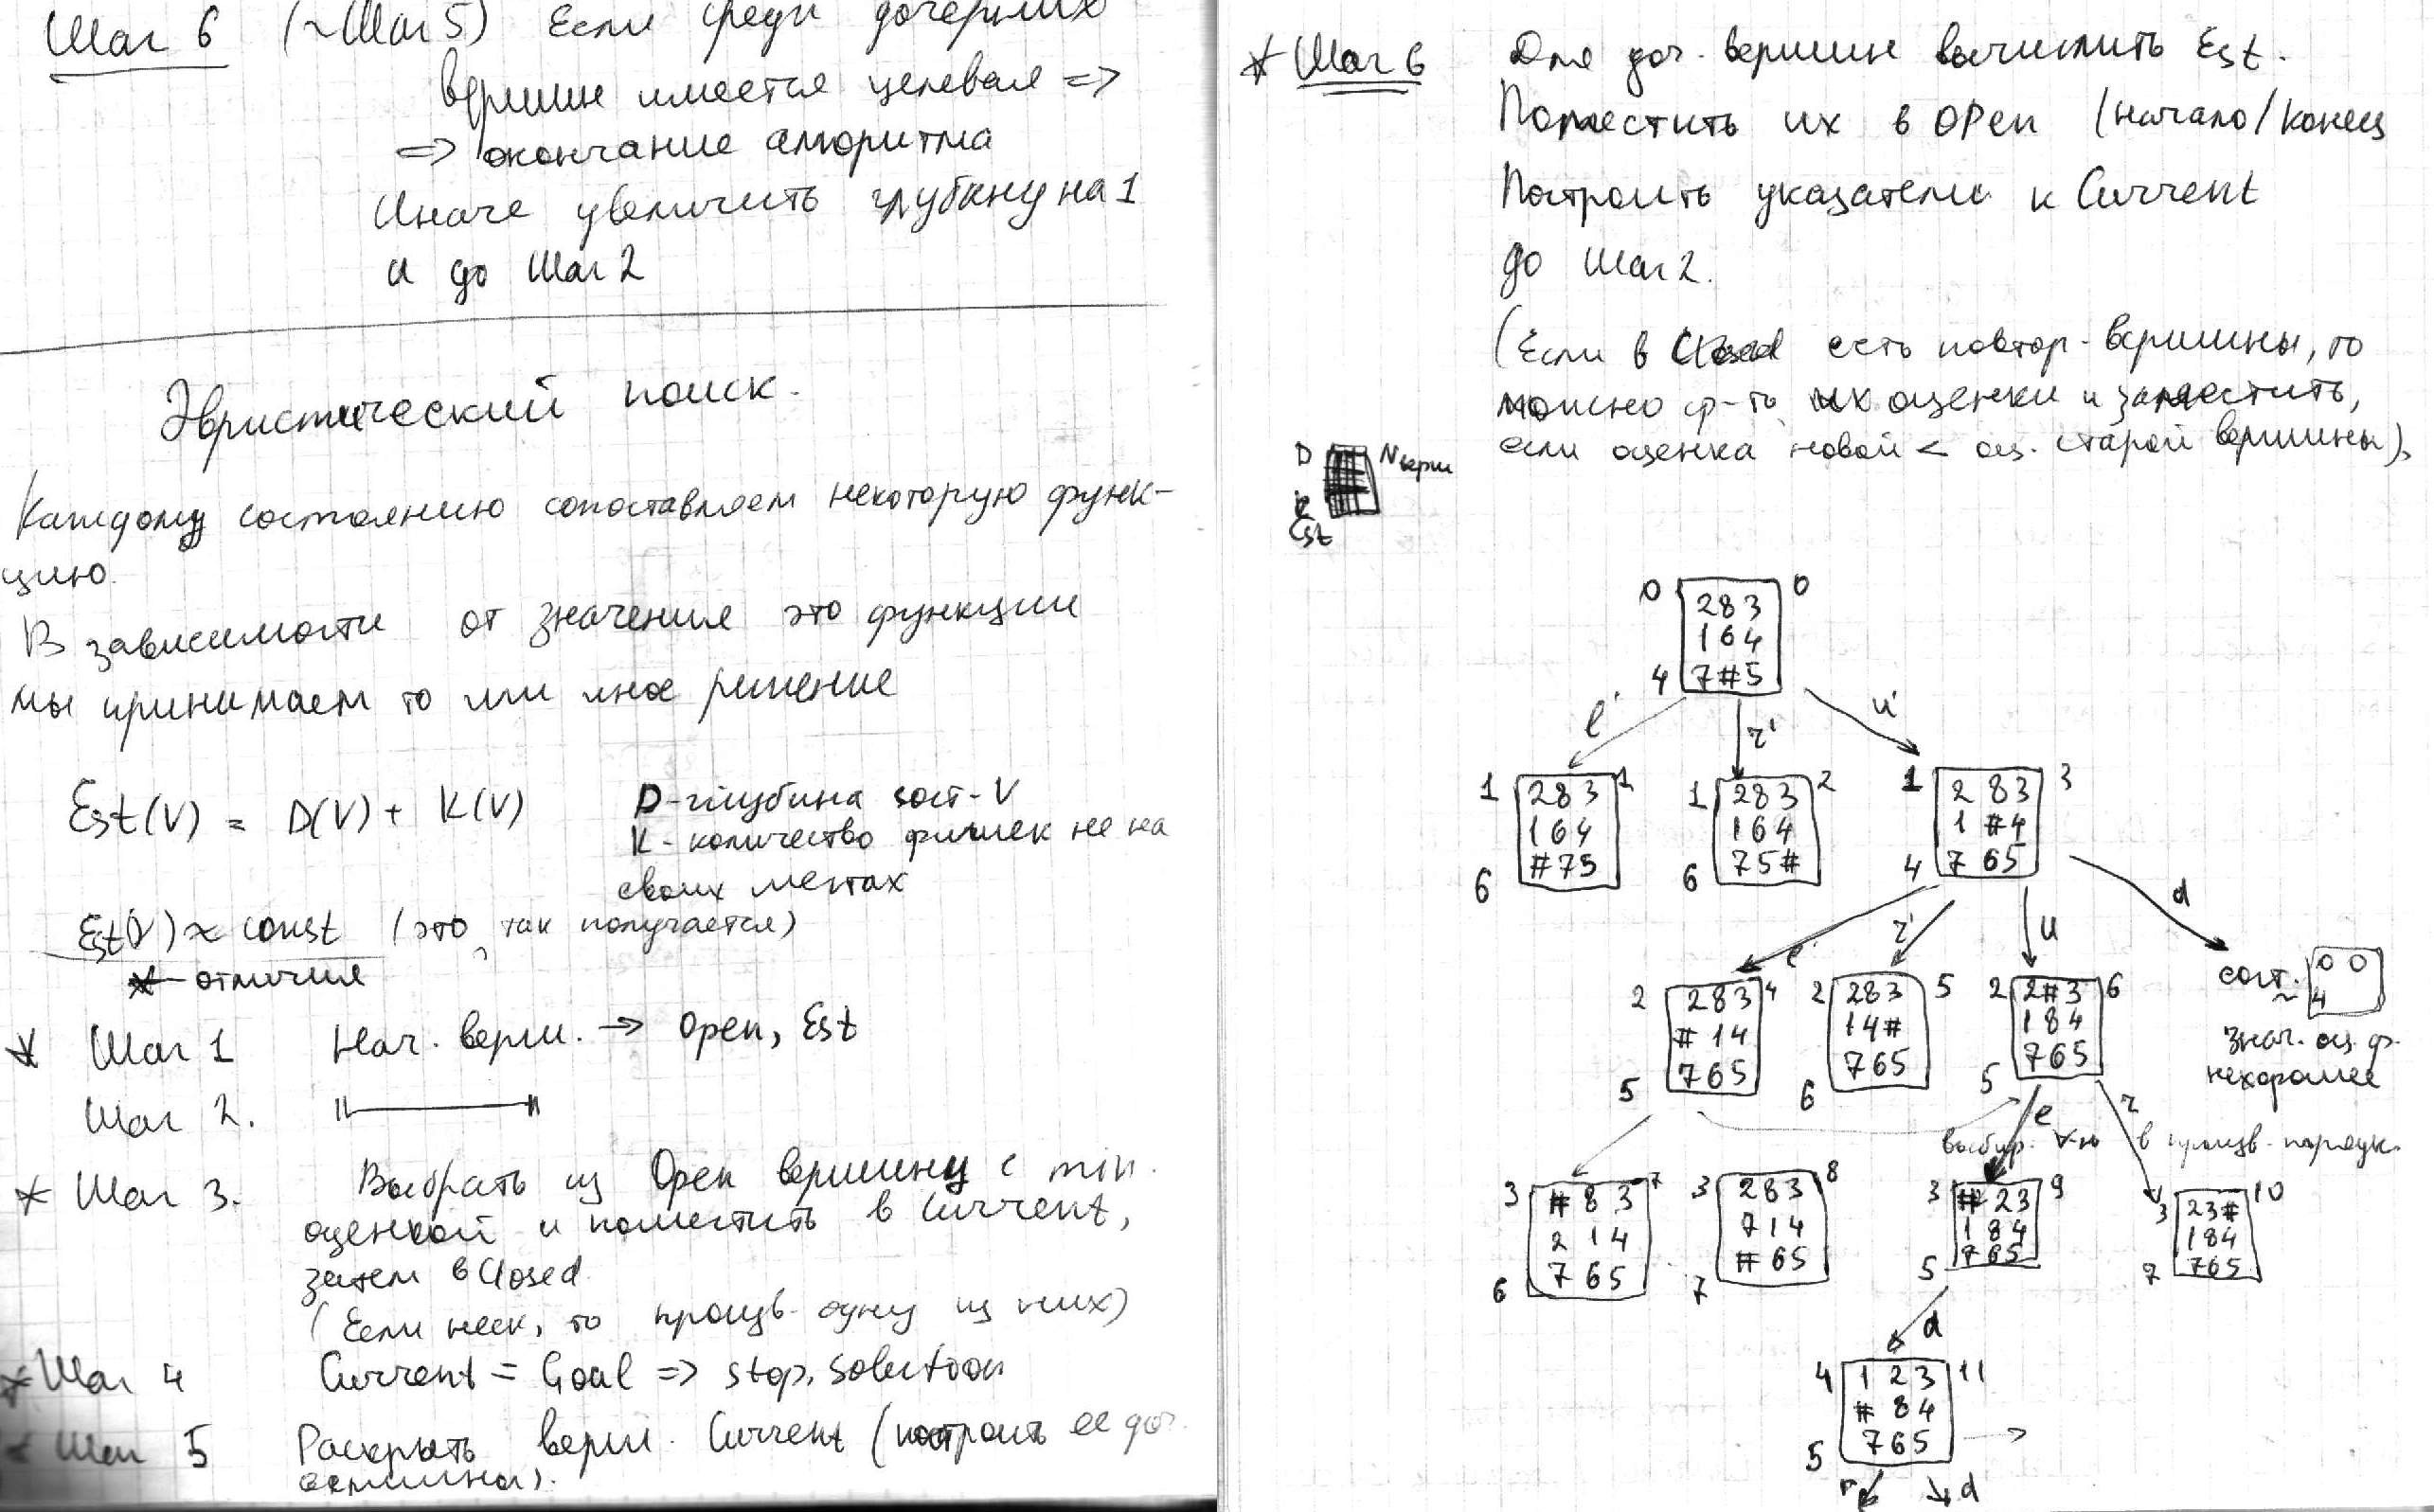 Шаг 6 (~Шаг 5) Если среди дочерних
вершин имеется целевая =>
=> окончание алгоритма
Иначе увеличить глубину на 1
и до Шаг 2
Эвристический поиск.
Каждому состоянию сопоставляем некоторую функ-
цию.
В зависимости от значения это функции
мы принимаем то или иное решение
Est(V) = D(V) + K(V)
D - глубина сост-V
K - количество фишек не на
своих местах
Est(V) ≈ const (это так получается)
* - отличия
* Шаг 1 Нач. верш. → Open, Est
Шаг 2. —"—
* Шаг 3. Выбрать из Open вершину с min.
оценкой и поместить в Current,
затем в Closed
(Если неск, то произв. одну из них)
* Шаг 4 Current = Goal => stop, solution
* Шаг 5 Раскрыть верш. Current (построить ее доч.
вершины).
* Шаг 6 Для доч. вершин вычислить Est.
Поместить их в OPEN (начало/конец
Построить указатели к Current
до Шаг 2.
(Если в Closed есть повтор-вершины, то
можно ср-ть их оценки и заместить,
если оценка новой < оц. старой вершины).
D N верш
Est
0 283 0
164
4 7#5
l' r' u'
1 283 1 1 283 2 1 283 3
164 164 1#4
6 #75 6 75# 4 765
l' r' u d
2 283 4 2 283 5 2 2#3 6 сост. ~ 0 0
#14 14# 184 4
5 765 6 765 5 765
знач. оц. ф.
нехорошее
l r
выбир. в произв. порядк.
3 #83 7 3 283 8 3 #23 9 3 23# 10
214 714 184 184
6 765 7 #65 5 765 7 765
d
4 123 11
#84
5 765
r d